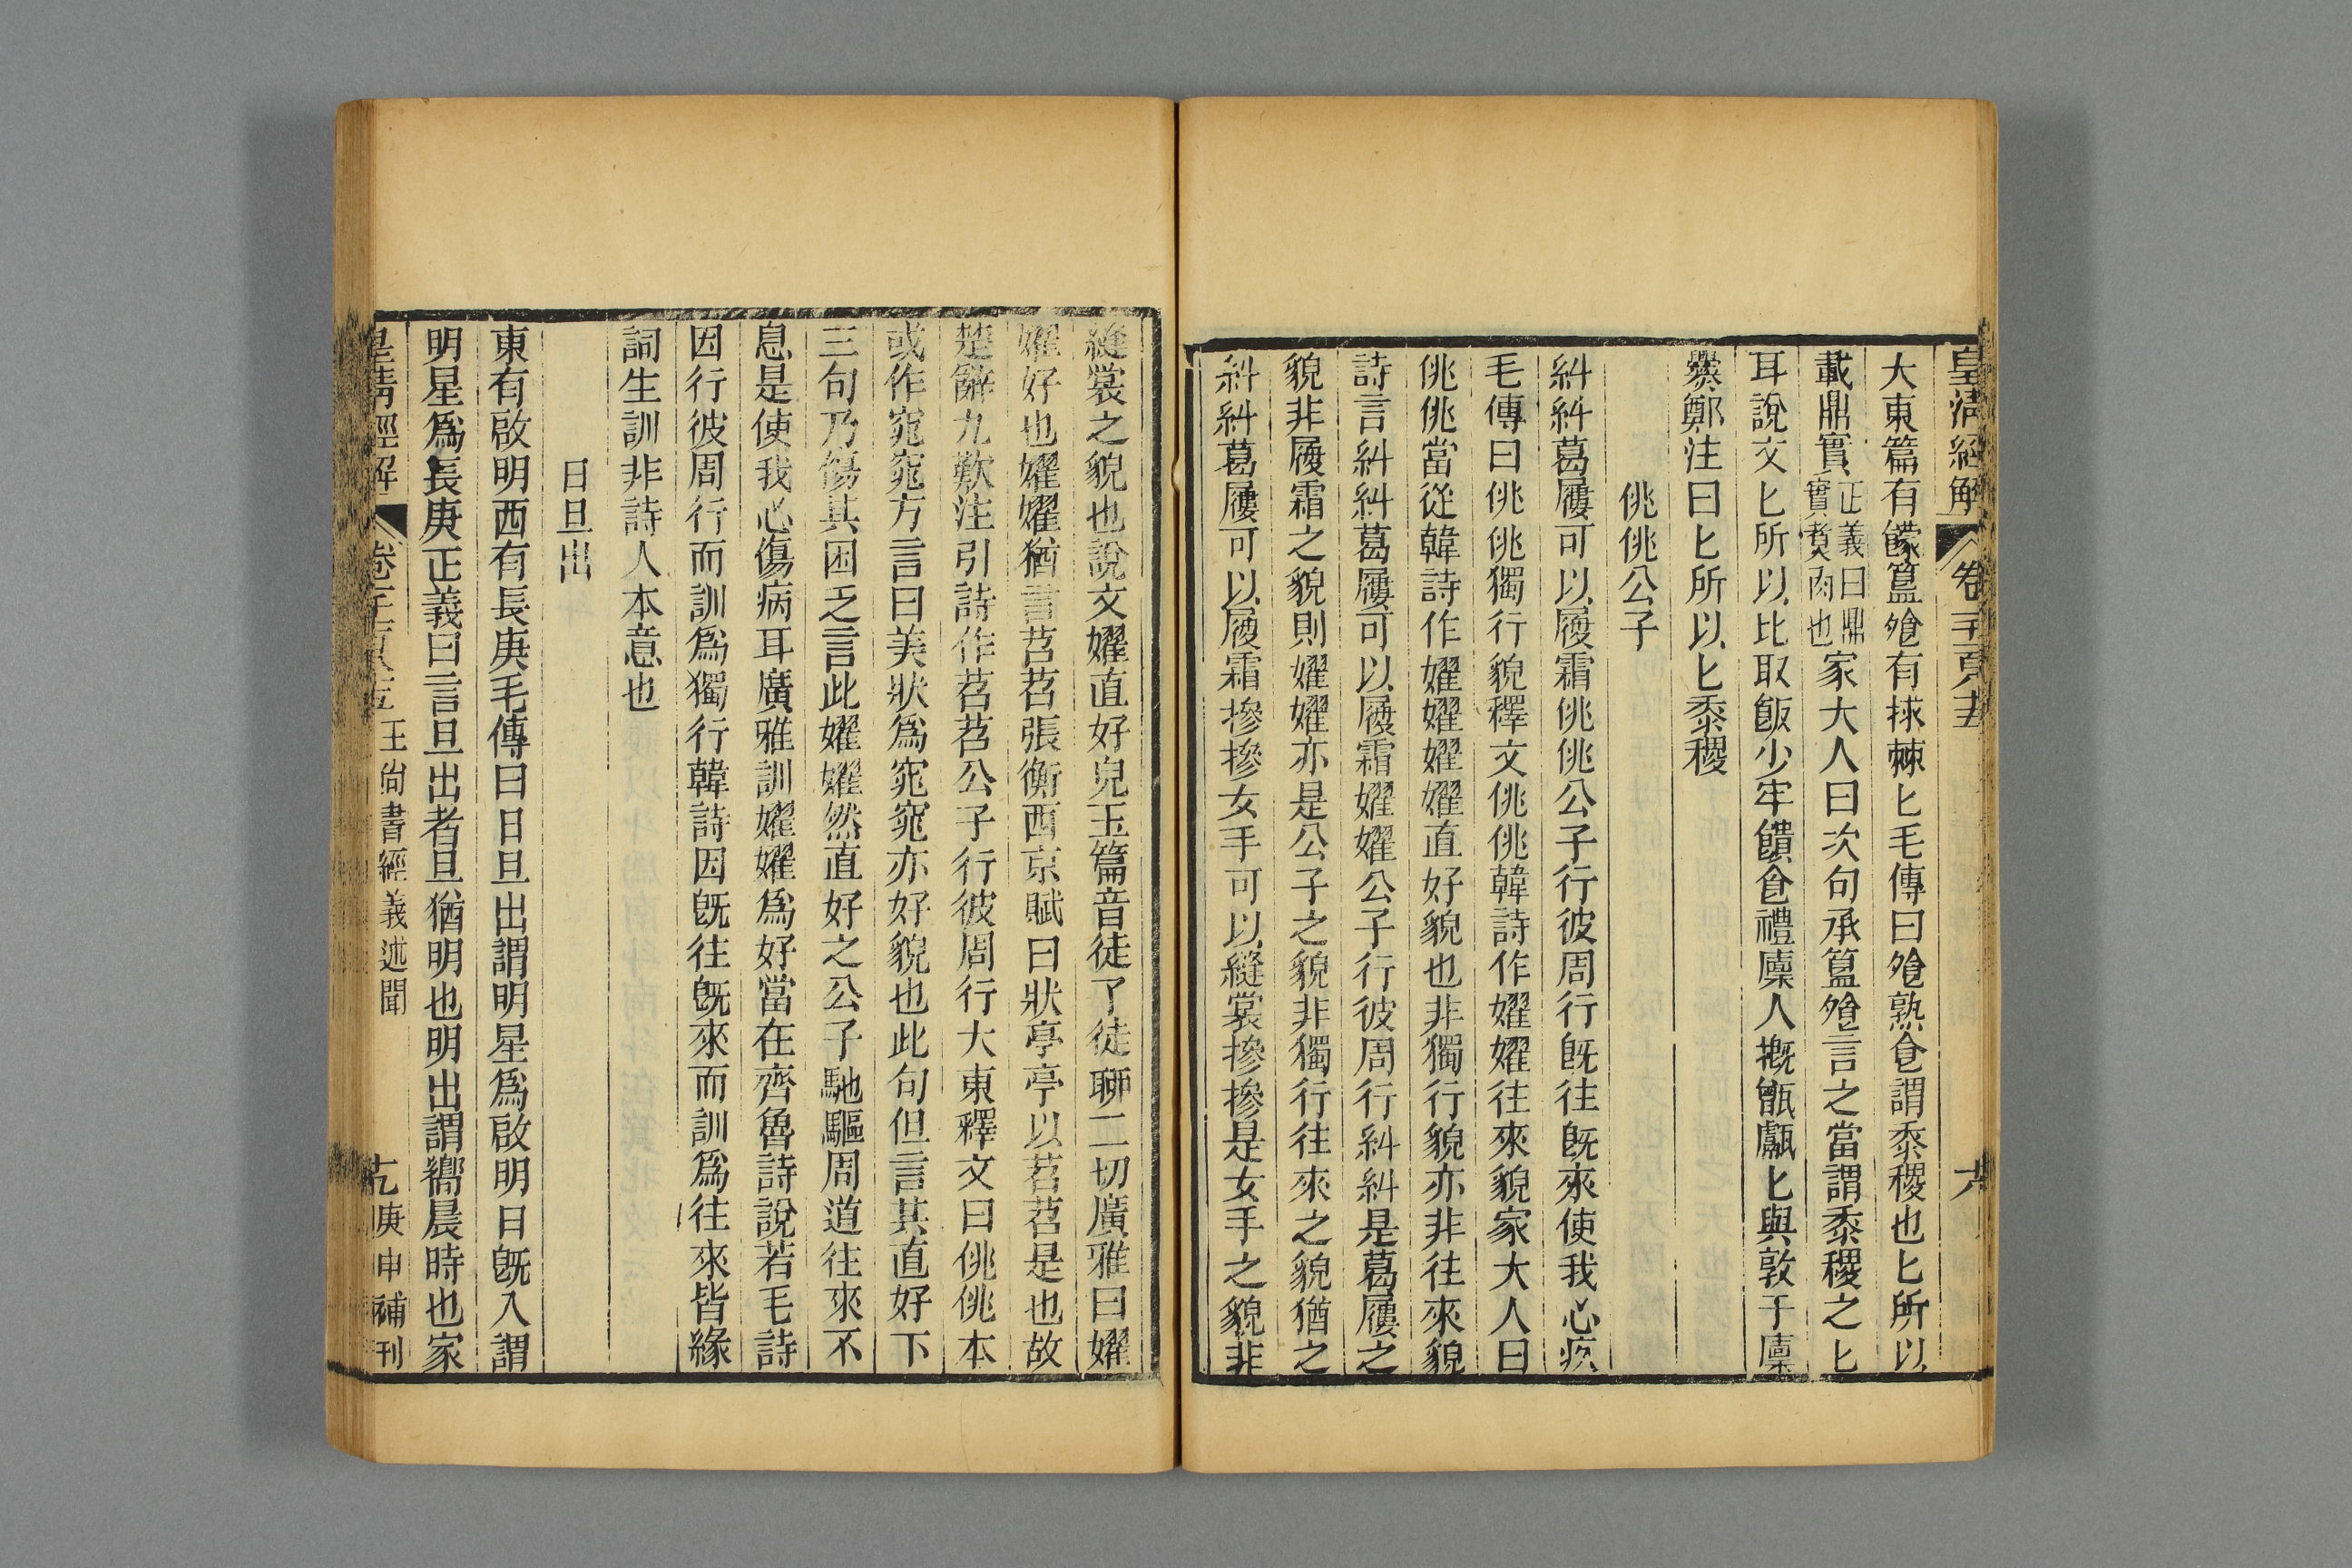 皇清經解 卷千一百八十五 六
大東篇有饛簋飧有捄棘匕毛傳曰飧熟食謂黍稷也匕所以
載鼎實正義曰鼎實煑肉也家大人曰次句承簋飧言之當謂黍稷之匕
耳說文匕所以比取飯少牢饋食禮廩人摡甑甗匕與敦于廩
爨鄭注曰匕所以匕黍稷
佻佻公子
糾糾葛屨可以履霜佻佻公子行彼周行旣往旣來使我心疚
毛傳曰佻佻獨行貌釋文佻佻韓詩作嬥嬥往來貌家大人曰
佻佻當從韓詩作嬥嬥嬥嬥直好貌也非獨行貌亦非往來貌
詩言糾糾葛屨可以履霜嬥嬥公子行彼周行糾糾是葛屨之
貌非履霜之貌則嬥嬥亦是公子之貌非獨行往來之貌猶之
糾糾葛屨可以履霜摻摻女手可以縫裳摻摻是女手之貌非
縫裳之貌也說文嬥直好皃玉篇音徒了徒聊二切廣雅曰嬥
嬥好也嬥嬥猶言苕苕張衡西京賦曰狀亭亭以苕苕是也故
楚辭九歎注引詩作苕苕公子行彼周行大東釋文曰佻佻本
或作窕窕方言曰美狀爲窕窕亦好貌也此句但言其直好下
三句乃傷其困乏言此嬥嬥然直好之公子馳驅周道往來不
息是使我心傷病耳廣雅訓嬥嬥爲好當在齊魯詩說若毛詩
因行彼周行而訓爲獨行韓詩因旣往旣來而訓爲往來皆緣
詞生訓非詩人本意也
日旦出
東有啟明西有長庚毛傳曰日旦出謂明星爲啟明日旣入謂
明星爲長庚正義曰言旦出者旦猶明也明出謂嚮晨時也家
皇清經解 卷千一百八十五 王尚書經義述聞 七 庚申補刊